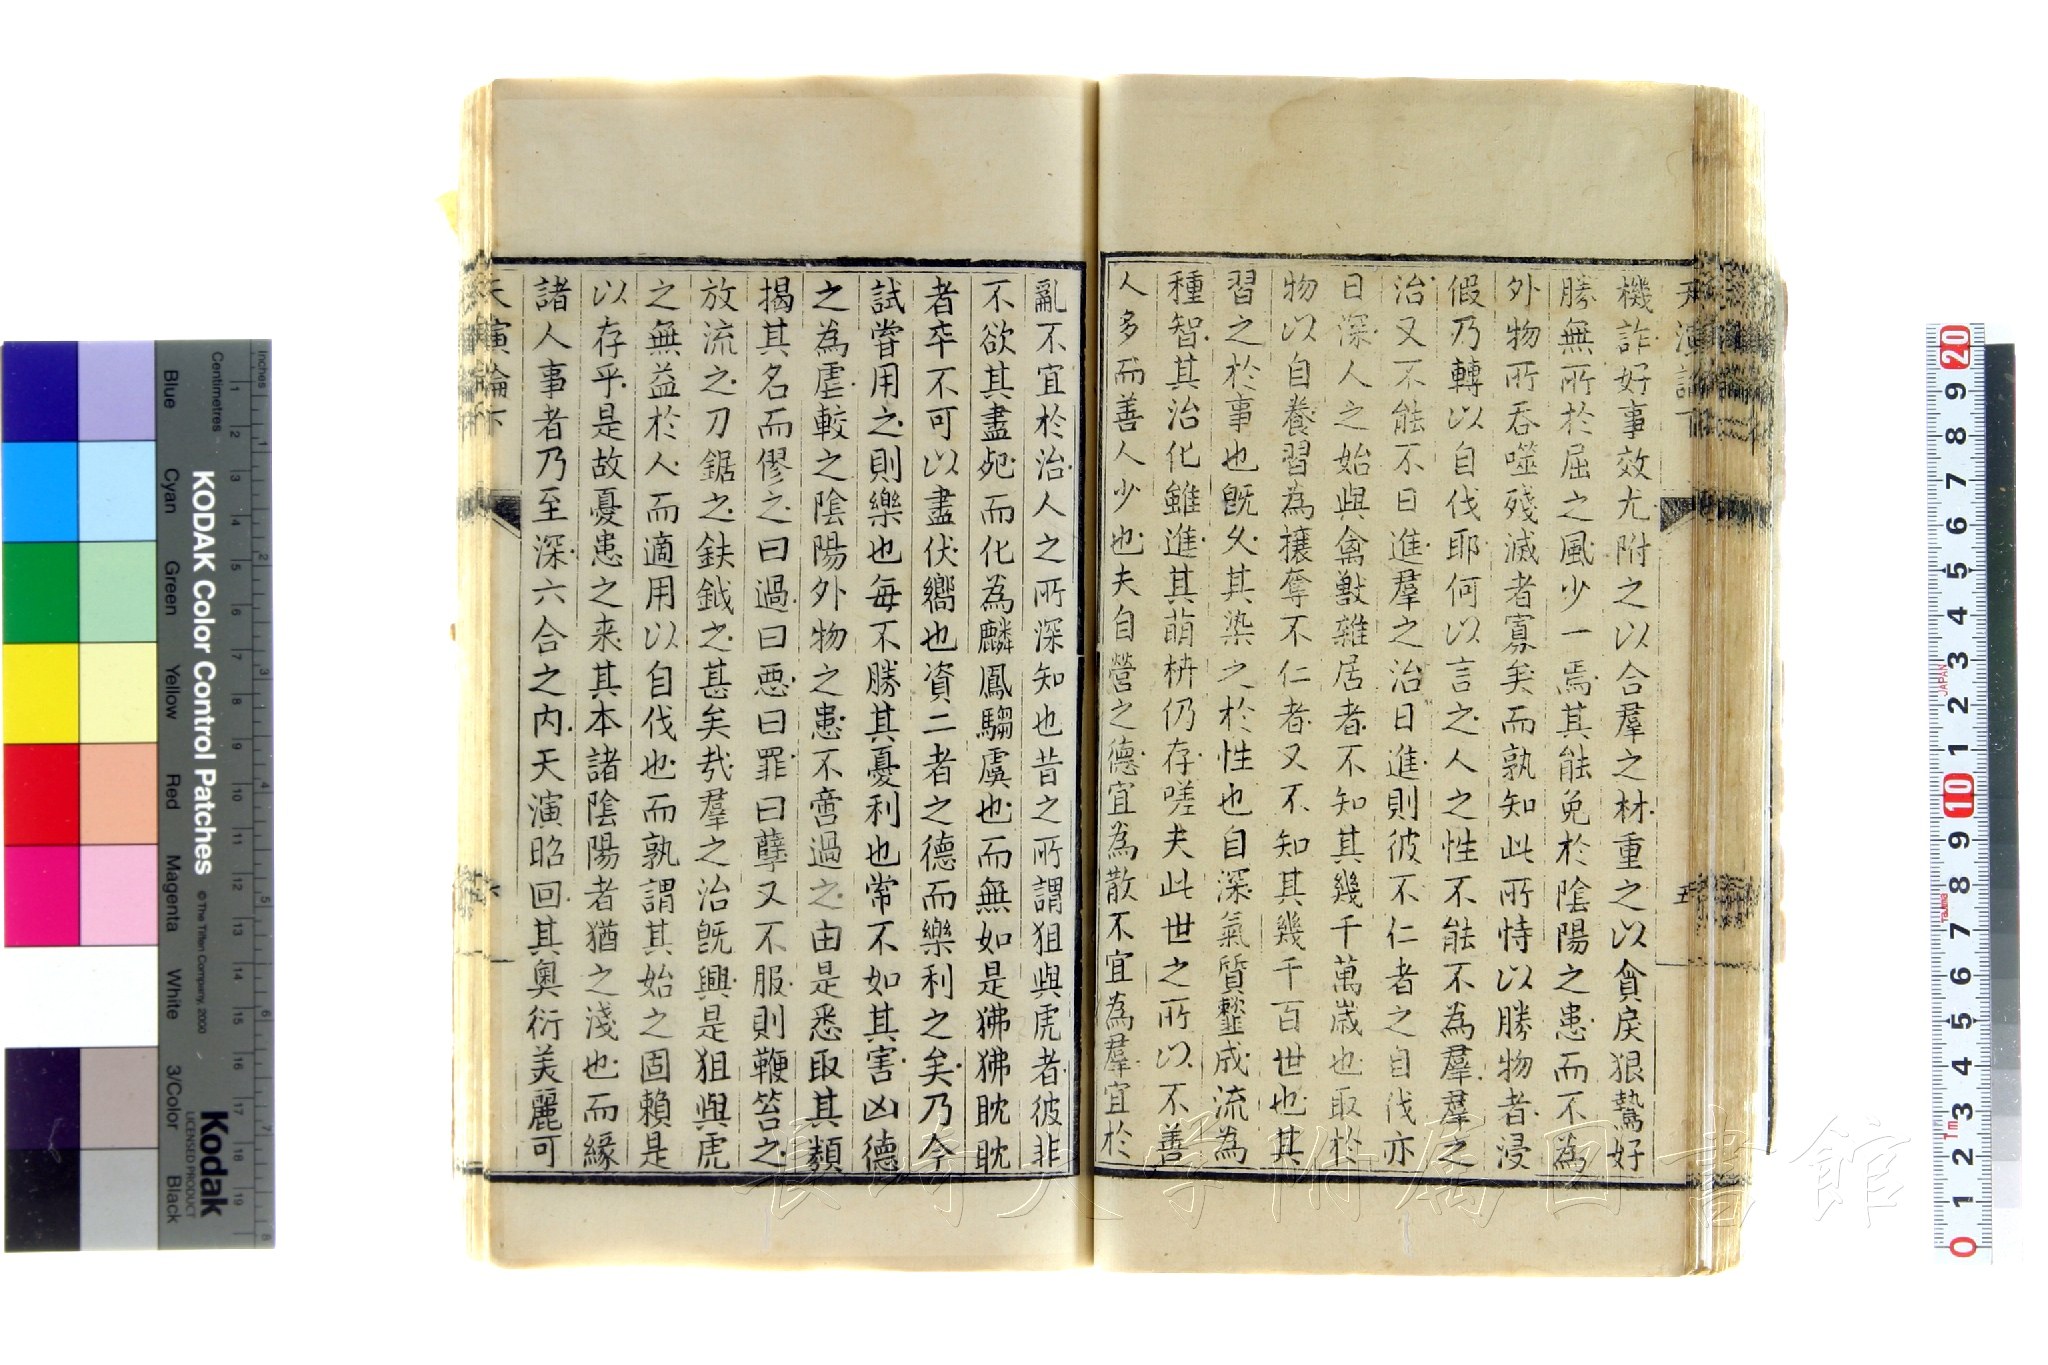 天演論下
機詐好事效尤附之以合羣之材重之以貪戾狠鷙好
勝無所於屈之風少一焉其能免於陰陽之患而不為
外物所吞噬殘滅者寡矣而孰知此所恃以勝物者浸
假乃轉以自伐耶何以言之人之性不能不為羣羣之
治又不能不日進羣之治日進則彼不仁者之自伐亦
日深人之始與禽獸雜居者不知其幾千萬歲也取於
物以自養習為攘奪不仁者又不知其幾千百世也其
習之於事也既久其染之於性也自深氣質𩐋成流為
種智其治化雖進其萌枿仍存嗟夫此世之所以不善
人多而善人少也夫自營之德宜為散不宜為羣宜於
五
亂不宜於治人之所深知也昔之所謂狙與虎者彼非
不欲其盡死而化為麟鳳騶虞也而無如是狒狒眈眈
者卒不可以盡伏嚮也資二者之德而樂利之矣乃今
試嘗用之則樂也每不勝其憂利也常不如其害凶德
之為虐較之陰陽外物之患不啻過之由是悉取其類
揭其名而僇之曰過曰惡曰罪曰孽又不服則鞭笞之
放流之刀鋸之鈇鉞之甚矣哉羣之治既興是狙與虎
之無益於人而適用以自伐也而孰謂其始之固賴是
以存乎是故憂患之來其本諸陰陽者猶之淺也而緣
諸人事者乃至深六合之內天演昭回其奧衍美麗可
天演論下
KODAK Color Control Patches
© The Tiffen Company, 2000
Kodak
LICENSED PRODUCT
Inches
Centimetres
Blue
Cyan
Green
Yellow
Red
Magenta
White
3/Color
Black
1 2 3 4 5 6 7 8 9 10 11 12 13 14 15 16 17 18 19
1 2 3 4 5 6 7 8
20 9 8 7 6 5 4 3 2 1 10 9 8 7 6 5 4 3 2 1 0
JAPAN
Tajima
1m
長崎大学附属図書館